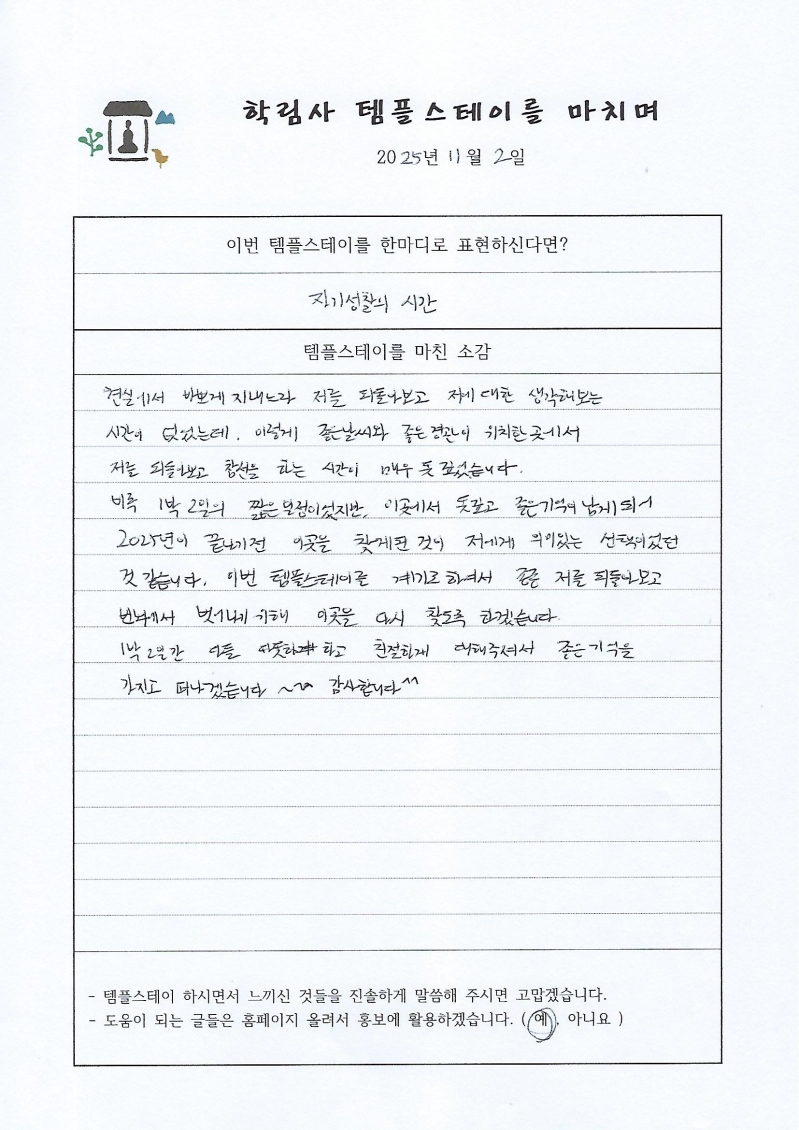 학림사 템플스테이를 마치며
2025년 11월 2일
이번 템플스테이를 한마디로 표현하신다면?
자기성찰의 시간
템플스테이를 마친 소감
현실에서 바쁘게 지내느라 저를 되돌아보고 저에 대한 생각해보는
시간이 없었는데, 이렇게 좋은날씨와 좋은 경관이 위치한 곳에서
저를 되돌아보고 참선을 하는 시간이 매우 뜻 깊었습니다.
비록 1박 2일의 짧은 일정이었지만, 이곳에서 뜻깊고 좋은기억이 남게 되어
2025년이 끝나기전 이곳을 찾게된 것이 저에게 의미있는 선택이었던
것 같습니다. 이번 템플스테이를 계기로 하여서 종종 저를 되돌아보고
번뇌에서 벗어나기 위해 이곳을 다시 찾도록 하겠습니다.
1박 2일간 다들 따뜻하고 친절하게 대해주셔서 좋은기억을
가지고 떠나겠습니다 ~ 감사합니다^^
- 템플스테이 하시면서 느끼신 것들을 진솔하게 말씀해 주시면 고맙겠습니다.
- 도움이 되는 글들은 홈페이지 올려서 홍보에 활용하겠습니다. ( 예 , 아니요 )